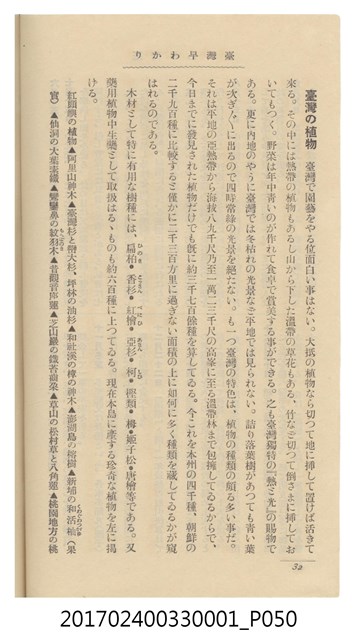 臺灣早わかり
臺灣の植物　臺灣で園藝をやる位面白い事はない。大抵の植物なら切つて地に挿して置けば活きて
來る。その中には熱帶の植物もあるし山から下した溫帶の草花もある、竹など切つて倒さまに挿してお
いてもつく。野菜は年中青いのが作れて食卓で賞美する事ができる。之も臺灣獨特の『熱と光』の賜物で
ある。更に內地のやうに臺灣では冬枯れの光景など平地では見られない。詰り落葉樹があつても青い葉
が次ぎ〳〵に出るので四時常綠の光景を絕たない。も一つ臺灣の特色は、植物の種類の頗る多い事だ。
それは平地の亞熱帶から海拔八九千尺乃至一萬二三千尺の高峯に至る溫帶林まで包擁してゐるからで、
今日までに發見された植物だけでも旣に約三千七百餘種を算してゐる。今これを本州の四千種、朝鮮の
二千九百種に比較すると僅かに二千三百方里に過ぎない面積の上に如何に多く種類を藏してゐるかが窺
はれるのである。
木材として特に有用な樹種には、扁柏・香杉・紅檜・亞杉・柯・樫類・栂・姬子松・唐檜等である。又
藥用植物中生藥として取扱はるゝものも約六百種に上つてゐる。現在本島に產する珍奇な植物を左に揭
ける。
紅頭嶼の植物▲阿里山神木▲臺灣杉と巒大杉、坪林の油杉▲和社溪の樟の神木▲澎湖島の榕樹▲新埔の和活柚（果
實）▲仙洞の大葉▲鵞鑾鼻の▲昔觀音座蓮▲芝山巖の▲草山の松村草と八角蓮▲桃園地方の桃
32
201702400330001_P050